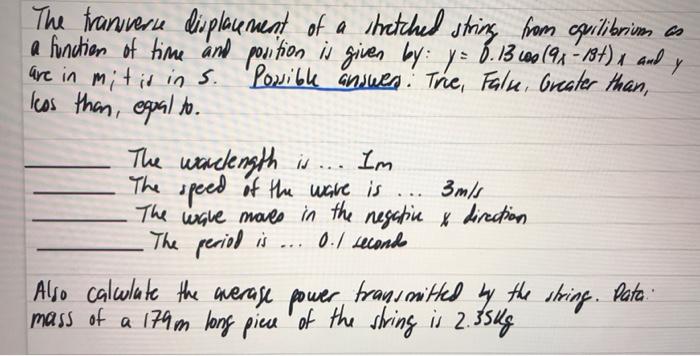 The tranverse displacement of a stretched string from equilibrium as
a function of time and position is given by: y = 0.13 cos(9x - 18t) x and y
are in m; t is in s. Possible answers: True, False, Greater than,
less than, equal to.
The wavelength is ... 1m
The speed of the wave is ... 3m/s
The wave moves in the negative x direction
The period is ... 0.1 seconds
Also calculate the average power transmitted by the string. Data:
mass of a 179m long piece of the string is 2.35kg